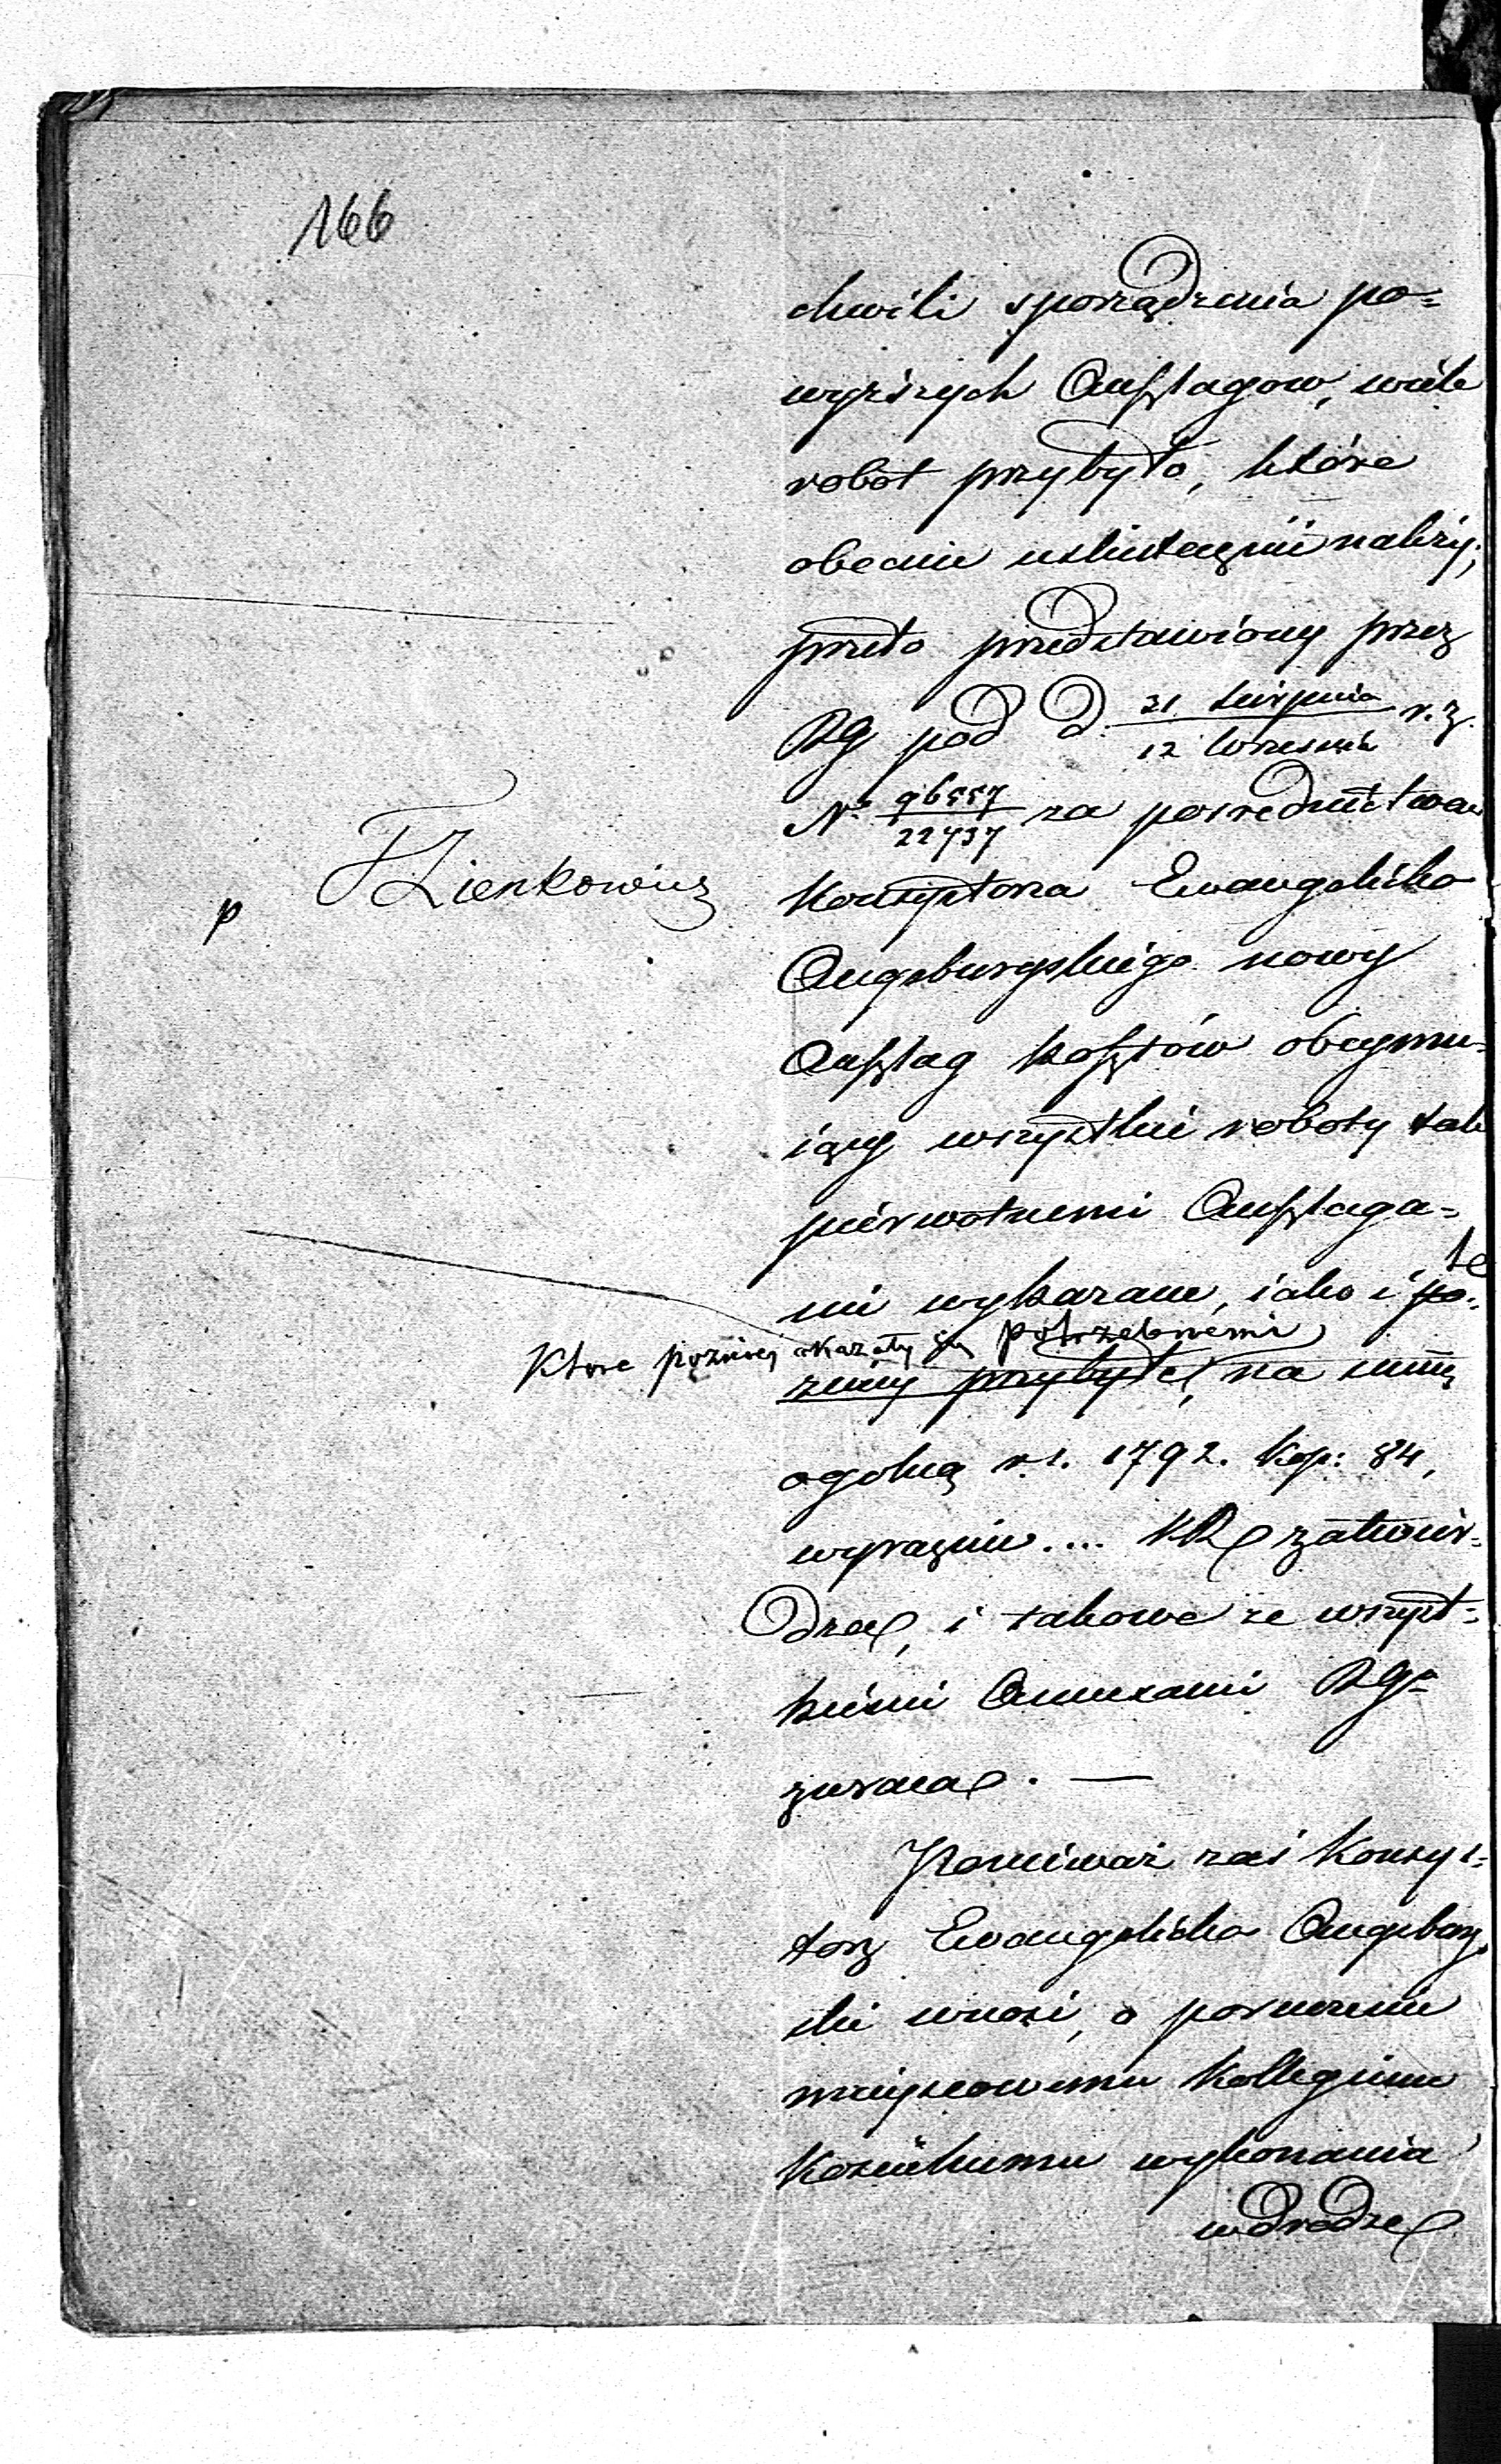 166
chwili sporządzenia po=
wyższych Anszlagow, wiele
robot przybyło, które
obecnie uskutecznić należy;
przeto przedstawiony przez
RG pod d. 31 Sierpnia / 12 Września r. z.
N° 96557 / 22737 za pośrednictwem
Konsystorza Ewangelicko
Augsburgskiego nowy
Anszlag kosztów obeymu=
iący wszystkie roboty tak
pierwotnemi Anszlaga=
mi wykazane, iako i te
Które pozniey okazały się potrzebnemi
zniey przybyłe, na summę
ogolną rs. 1792. kop: 84,
wyraznie.... KR zatwier=
dza, i takowe ze wszyst=
kiemi Annexami RG=
zwraca. —
Ponieważ zaś Konsys=
torz Ewangelicko Augsburg
ski wnosi, o poruczenie
mieyscowemu Kollegium
Kościelnemu wykonania
w drodze
p FZienkowicz